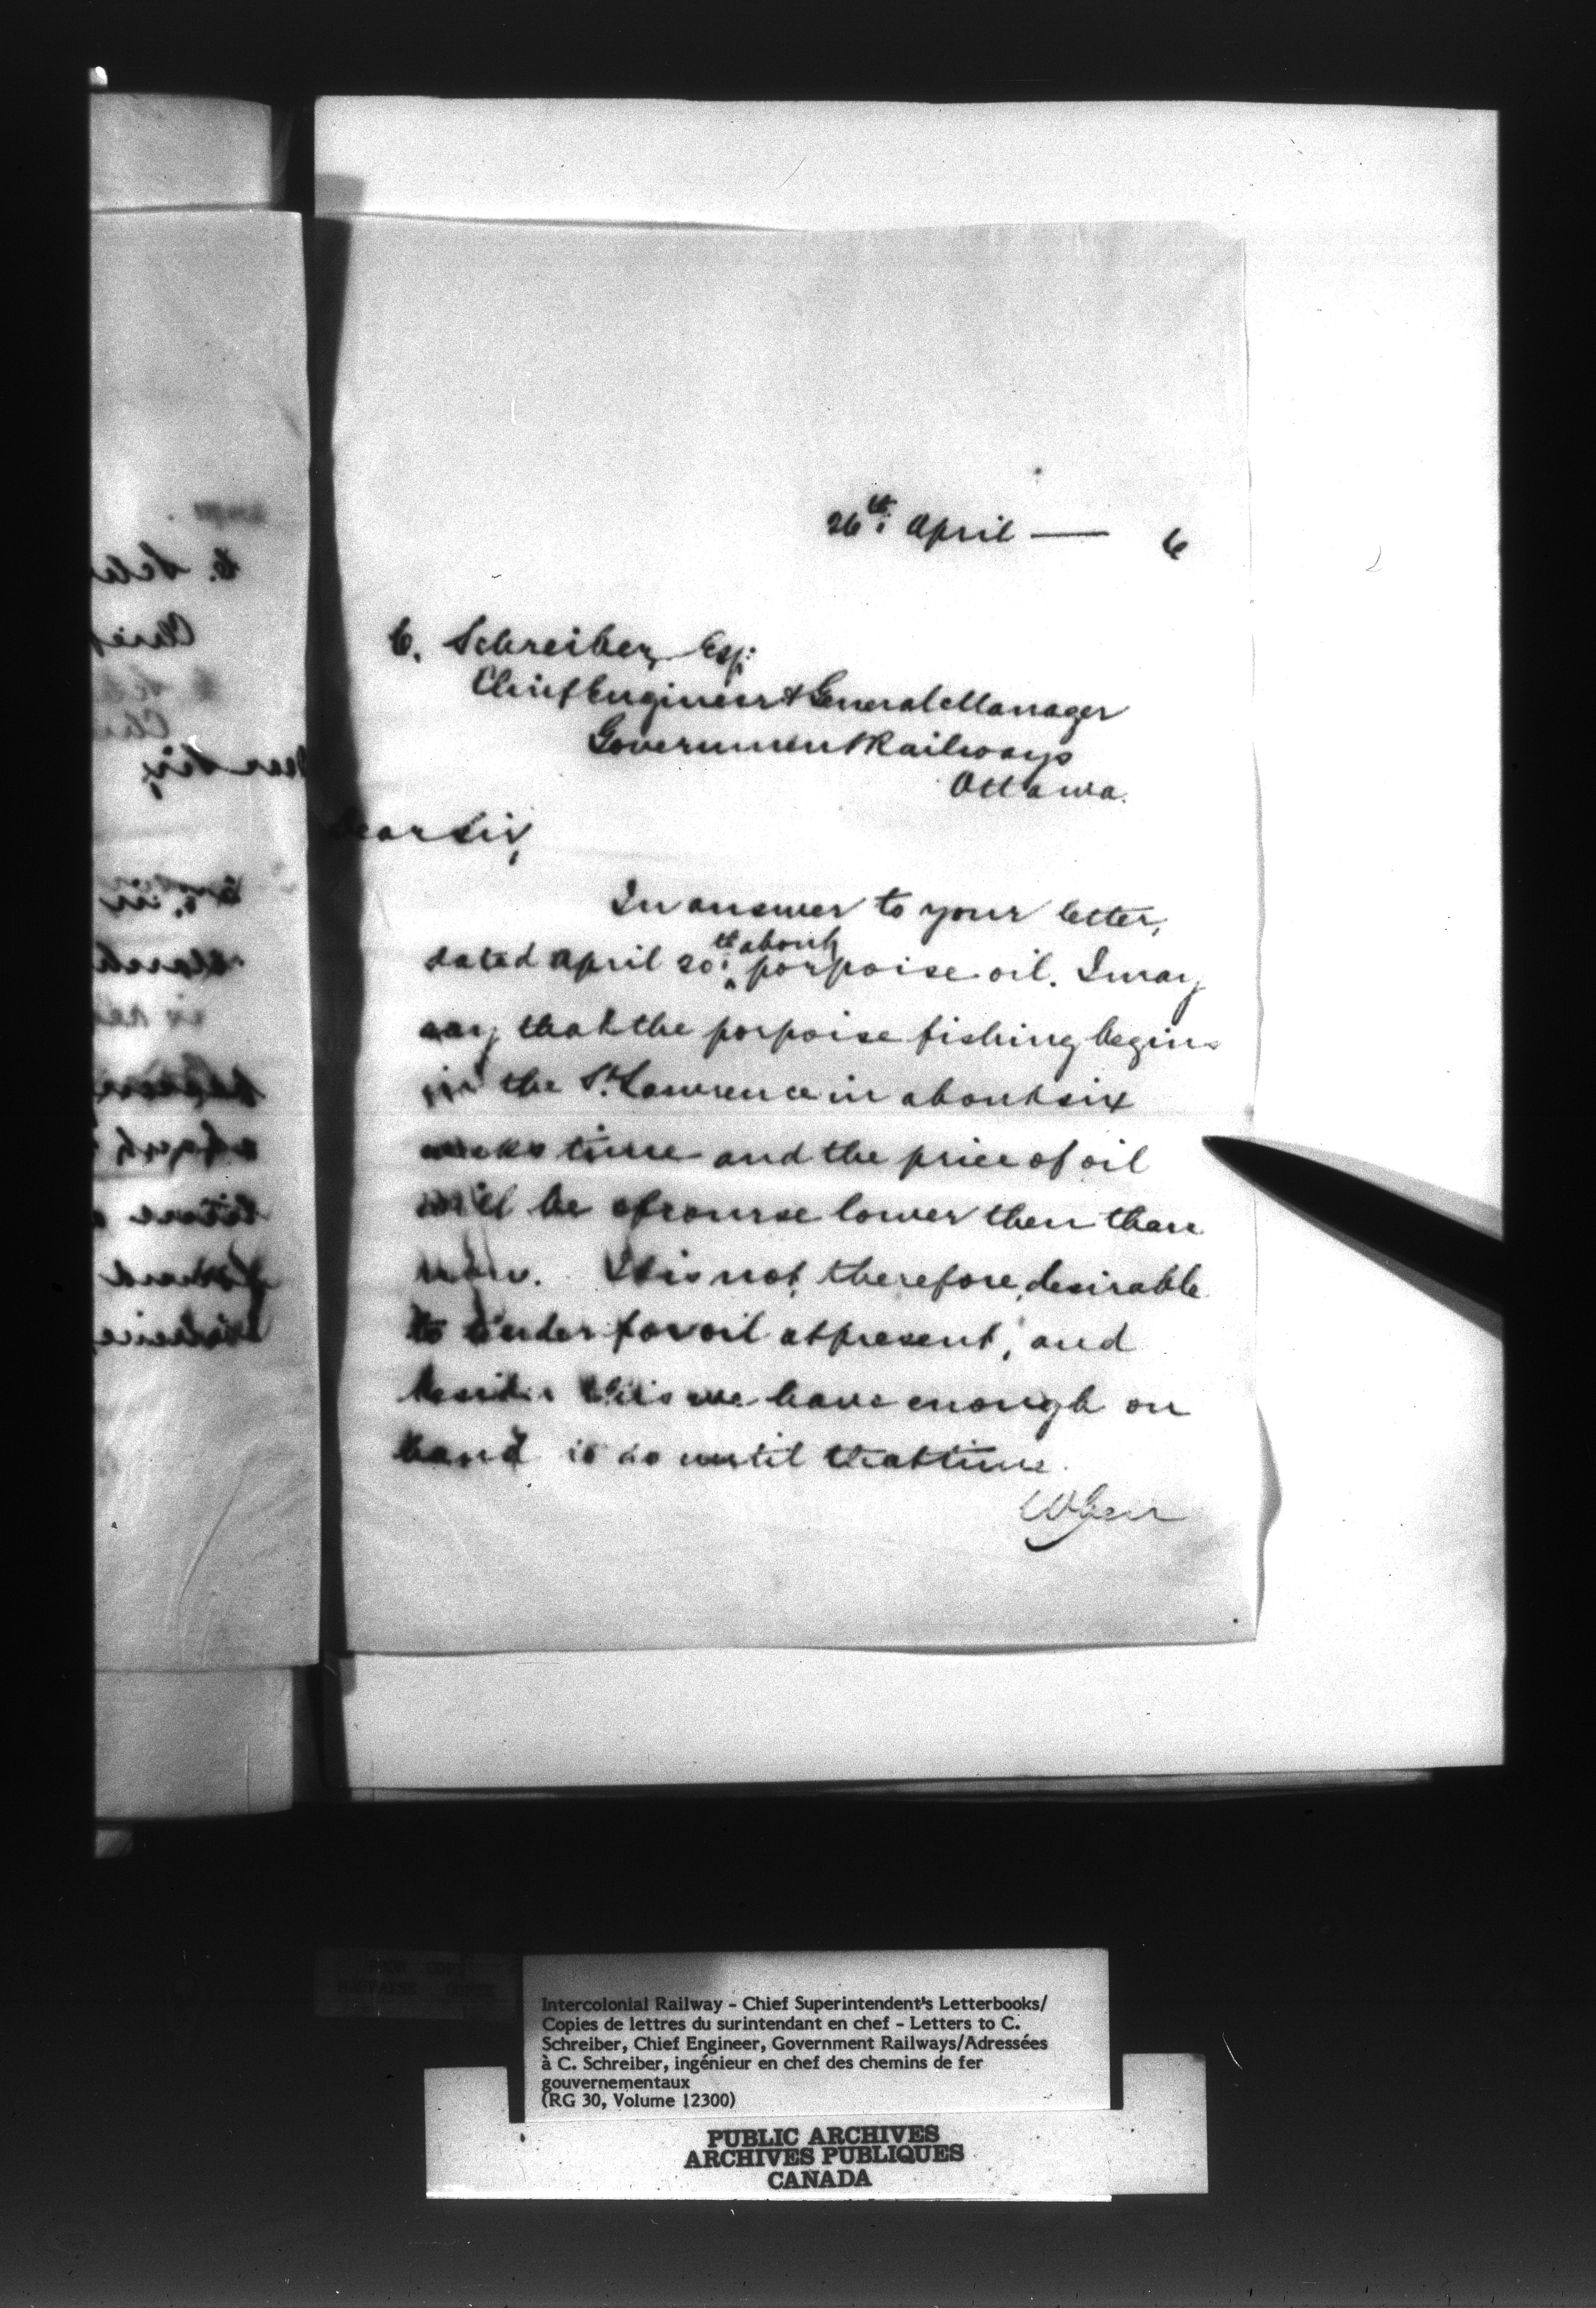 26th April — 6
C. Schreiber, Esq:
Chief Engineer & General Manager
Government Railways
Ottawa.
Dear Sir,
In answer to your letter,
dated April 20th about porpoise oil. I may
say that the porpoise fishing begins
in the St. Lawrence in about six
weeks time and the price of oil
will be of course lower then than
now. It is not, therefore, desirable
to tender for oil at present, and
besides this we have enough on
hand to do until that time.
Intercolonial Railway - Chief Superintendent's Letterbooks/
Copies de lettres du surintendant en chef - Letters to C.
Schreiber, Chief Engineer, Government Railways/Adressées
à C. Schreiber, ingénieur en chef des chemins de fer
gouvernementaux
(RG 30, Volume 12300)
PUBLIC ARCHIVES
ARCHIVES PUBLIQUES
CANADA